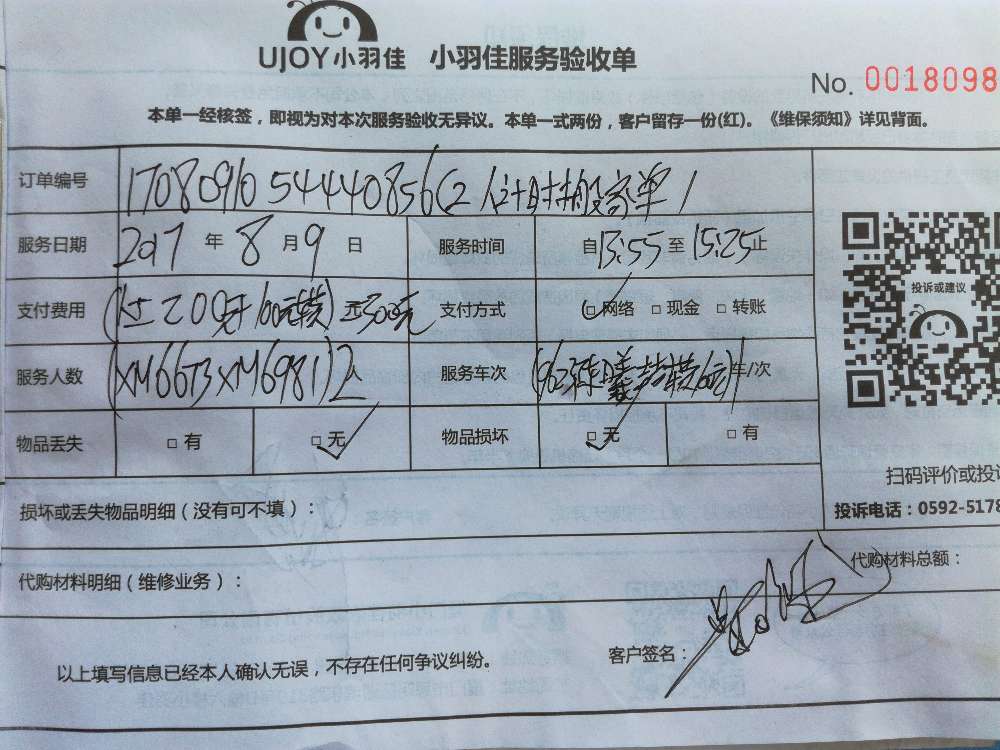 UJOY小羽佳 小羽佳服务验收单
No. 0018098
本单一经核签，即视为对本次服务验收无异议。本单一式两份，客户留存一份(红)。《维保须知》详见背面。
订单编号 1708091054440856(2人计时搬家单)
服务日期 2017 年 8 月 9 日 服务时间 自 13:55 至 15:25 止
支付费用 200元+100元 =300元 支付方式 □网络 □现金 □转账
服务人数 (XM6673XM6981)2人 服务车次 车/次
物品丢失 □有 □无 物品损坏 □无 □有
投诉或建议
扫码评价或投
投诉电话：0592-5178
损坏或丢失物品明细（没有可不填）：
代购材料明细（维修业务）： 代购材料总额：
以上填写信息已经本人确认无误，不存在任何争议纠纷。 客户签名：